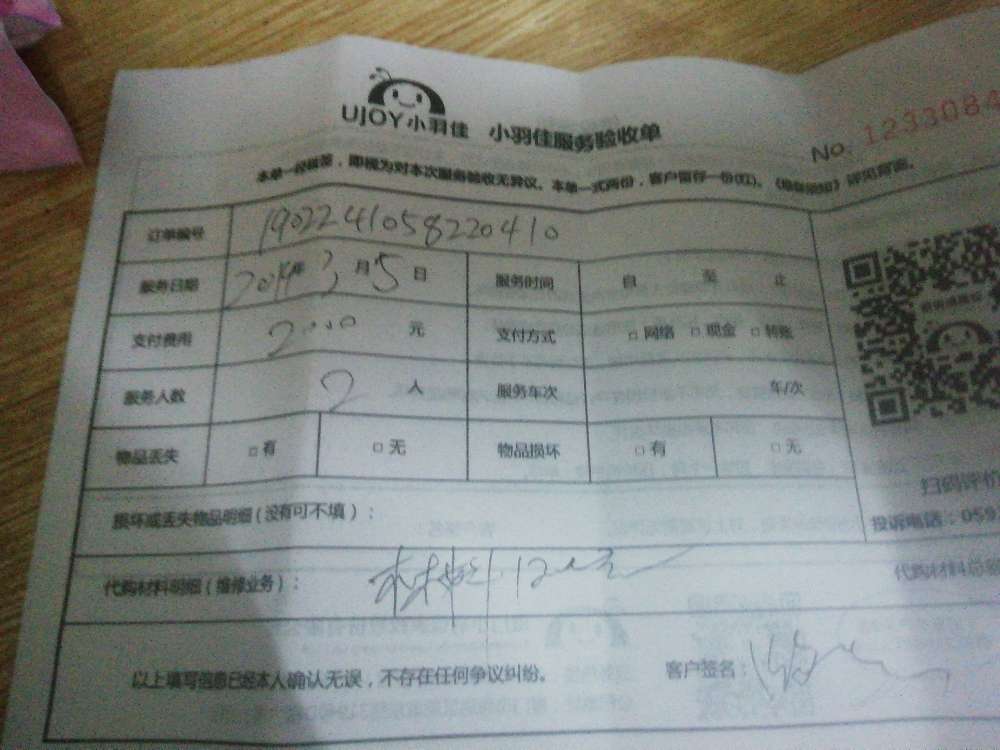 UJOY小羽佳 小羽佳服务验收单
No. 1233084
本单一经签署，即视为对本次服务验收无异议。本单一式两份，客户留存一份(红)。《服务须知》详见背面。
订单编号 1902241058220410
服务日期 2019年3月5日 服务时间 自 至 止
支付费用 2000 元 支付方式 □ 网络 □ 现金 □ 转账
服务人数 2 人 服务车次 车/次
物品丢失 □ 有 □ 无 物品损坏 □ 有 □ 无
扫码评价
损坏或丢失物品明细（没有可不填）：
投诉电话：059
代购材料明细（维修业务）： 材料
代购材料总额
以上填写信息已经本人确认无误，不存在任何争议纠纷。 客户签名：